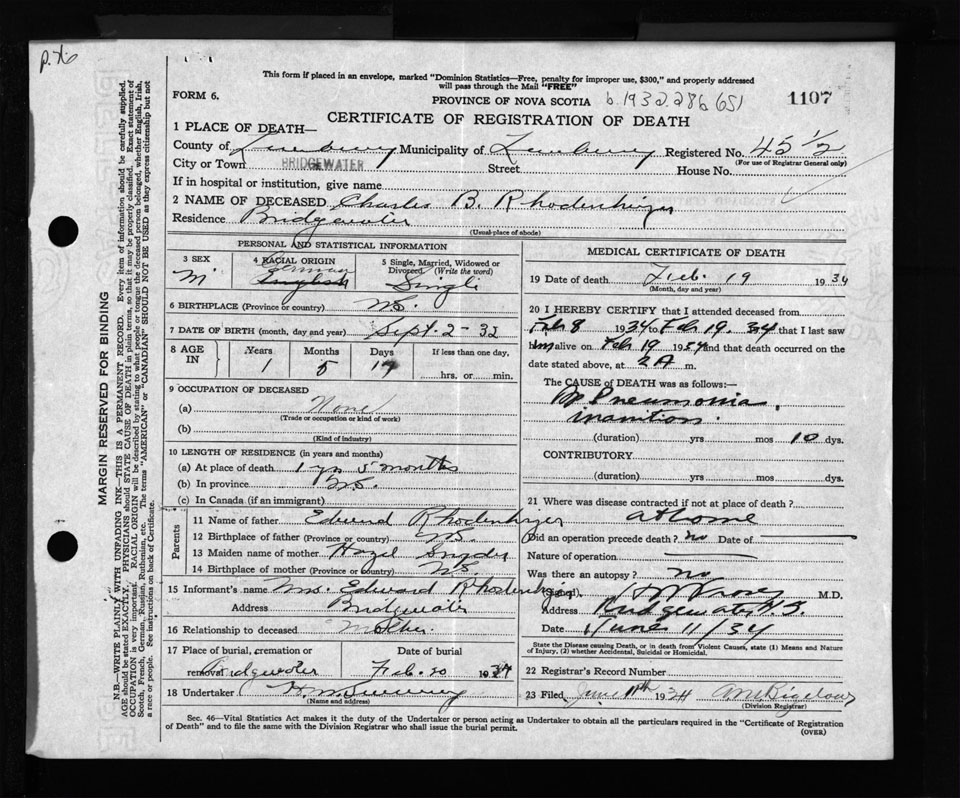 p.76
This form if placed in an envelope, marked "Dominion Statistics—Free, penalty for improper use, $300," and properly addressed
will pass through the Mail "FREE"
FORM 6.
PROVINCE OF NOVA SCOTIA b.1932.286 651
1107
CERTIFICATE OF REGISTRATION OF DEATH
1 PLACE OF DEATH—
County of Lunenburg Municipality of Lunenburg Registered No. 45 1/2
(For use of Registrar General only)
City or Town BRIDGEWATER Street House No.
If in hospital or institution, give name
2 NAME OF DECEASED Charles B. Rhodenhizer
Residence Bridgewater
(Usual place of abode)
PERSONAL AND STATISTICAL INFORMATION
3 SEX
M
4 RACIAL ORIGIN
German
English
5 Single, Married, Widowed or
Divorced (Write the word)
Single
6 BIRTHPLACE (Province or country) N.S.
7 DATE OF BIRTH (month, day and year) Sept. 2-32
8 AGE
IN
Years Months Days If less than one day,
1 5 17
hrs. or min.
9 OCCUPATION OF DECEASED
(a) None
(Trade or occupation or kind of work)
(b)
(Kind of industry)
10 LENGTH OF RESIDENCE (in years and months)
(a) At place of death 1 yr 5 months
(b) In province N.S.
(c) In Canada (if an immigrant)
Parents
11 Name of father Edward Rhodenhizer
12 Birthplace of father (Province or country) N.S.
13 Maiden name of mother Hazel Snyder
14 Birthplace of mother (Province or country) N.S.
15 Informant's name Mrs. Edward Rhodenhizer
Address Bridgewater
16 Relationship to deceased Mother
17 Place of burial, cremation or
removal Bridgewater
Date of burial
Feb. 20 1934
18 Undertaker H.M.
(Name and address)
MEDICAL CERTIFICATE OF DEATH
19 Date of death Feb. 19 1934
(Month, day and year)
20 I HEREBY CERTIFY that I attended deceased from
Feb 8 1934 to Feb 19. 34 that I last saw
him alive on Feb 19 1934 and that death occurred on the
date stated above, at 2 A m.
The CAUSE of DEATH was as follows:—
Pneumonia,
inanition.
(duration) yrs mos 10 dys.
CONTRIBUTORY
(duration) yrs mos dys.
21 Where was disease contracted if not at place of death?
at home
Did an operation precede death? no Date of
Nature of operation
Was there an autopsy? no
(Signed) M.D.
Address Bridgewater N.S.
Date June 11/34
State the Disease causing Death, or in death from Violent Causes, state (1) Means and Nature
of Injury, (2) whether Accidental, Suicidal or Homicidal.
22 Registrar's Record Number
23 Filed June 11th 1934
(Division Registrar)
Sec. 46—Vital Statistics Act makes it the duty of the Undertaker or person acting as Undertaker to obtain all the particulars required in the "Certificate of Registration
of Death" and to file the same with the Division Registrar who shall issue the burial permit.
(OVER)
MARGIN RESERVED FOR BINDING
N.B.—WRITE PLAINLY WITH UNFADING INK—THIS IS A PERMANENT RECORD. Every item of information should be carefully supplied.
AGE should be stated EXACTLY. PHYSICIANS should STATE CAUSE OF DEATH in plain terms, so that it may be properly classified. Exact statement of
OCCUPATION is very important. RACIAL ORIGIN will be described by stating to what people or tongue the deceased person belonged, whether English, Irish,
Scotch, French, German, Russian, Ruthenian, etc. The terms "AMERICAN" or "CANADIAN" SHOULD NOT BE USED as they express citizenship but not
a race or people. See instructions on back of Certificate.